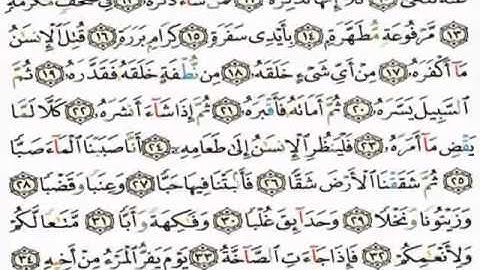 عَنْهُ تَلَهَّىٰ ﴿١٠﴾ كَلَّا إِنَّهَا تَذْكِرَةٌ ﴿١١﴾ فَمَن شَاءَ ذَكَرَهُ ﴿١٢﴾ فِي صُحُفٍ مُّكَرَّمَةٍ
﴿١٣﴾ مَّرْفُوعَةٍ مُّطَهَّرَةٍ ﴿١٤﴾ بِأَيْدِي سَفَرَةٍ ﴿١٥﴾ كِرَامٍ بَرَرَةٍ ﴿١٦﴾ قُتِلَ الْإِنسَانُ
مَا أَكْفَرَهُ ﴿١٧﴾ مِنْ أَيِّ شَيْءٍ خَلَقَهُ ﴿١٨﴾ مِن نُّطْفَةٍ خَلَقَهُ فَقَدَّرَهُ ﴿١٩﴾ ثُمَّ
السَّبِيلَ يَسَّرَهُ ﴿٢٠﴾ ثُمَّ أَمَاتَهُ فَأَقْبَرَهُ ﴿٢١﴾ ثُمَّ إِذَا شَاءَ أَنشَرَهُ ﴿٢٢﴾ كَلَّا لَمَّا
يَقْضِ مَا أَمَرَهُ ﴿٢٣﴾ فَلْيَنظُرِ الْإِنسَانُ إِلَىٰ طَعَامِهِ ﴿٢٤﴾ أَنَّا صَبَبْنَا الْمَاءَ صَبًّا
﴿٢٥﴾ ثُمَّ شَقَقْنَا الْأَرْضَ شَقًّا ﴿٢٦﴾ فَأَنبَتْنَا فِيهَا حَبًّا ﴿٢٧﴾ وَعِنَبًا وَقَضْبًا ﴿٢٨﴾
وَزَيْتُونًا وَنَخْلًا ﴿٢٩﴾ وَحَدَائِقَ غُلْبًا ﴿٣٠﴾ وَفَاكِهَةً وَأَبًّا ﴿٣١﴾ مَّتَاعًا لَّكُمْ
وَلِأَنْعَامِكُمْ ﴿٣٢﴾ فَإِذَا جَاءَتِ الصَّاخَّةُ ﴿٣٣﴾ يَوْمَ يَفِرُّ الْمَرْءُ مِنْ أَخِيهِ ﴿٣٤﴾